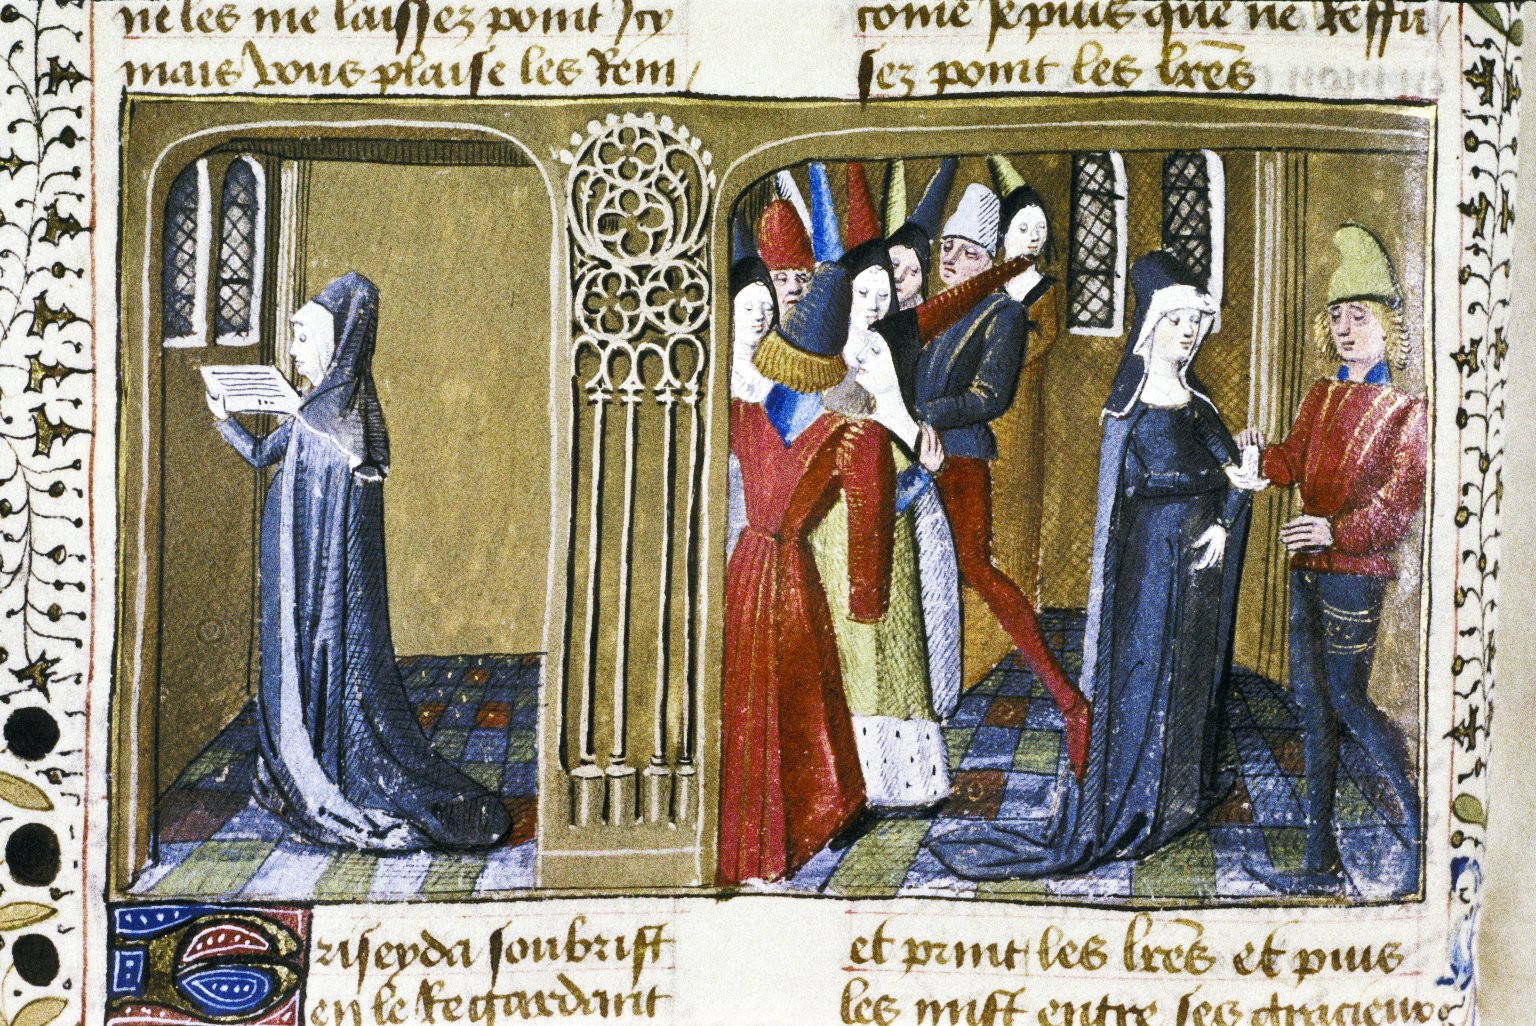 ne les me laissez point Icy
mais vous plaise les Rem
come Je puis que ne Reffu
sez point les lr̃es
Briseyda soubrist
en le Regardant
et print les lr̃es et puis
les mist entre ses gracieux